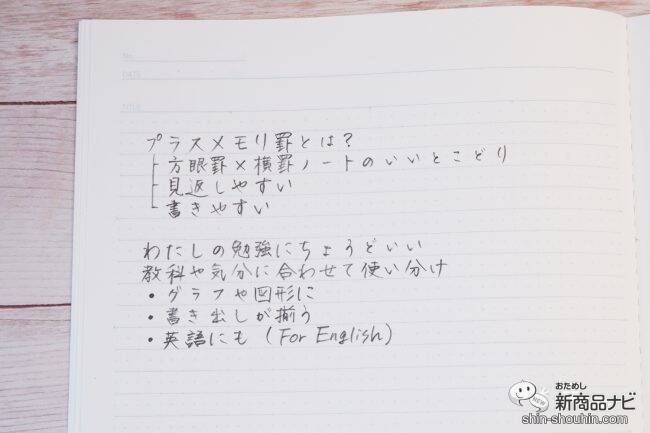 No.
DATE
TITLE
プラスメモリ罫とは?
├ 方眼罫×横罫ノートのいいとこどり
├ 見返しやすい
└ 書きやすい
わたしの勉強にちょうどいい
教科や気分に合わせて使い分け
・グラフや図形に
・書き出しが揃う
・英語にも (For English)
おためし
新商品ナビ
NEW
shin-shouhin.com